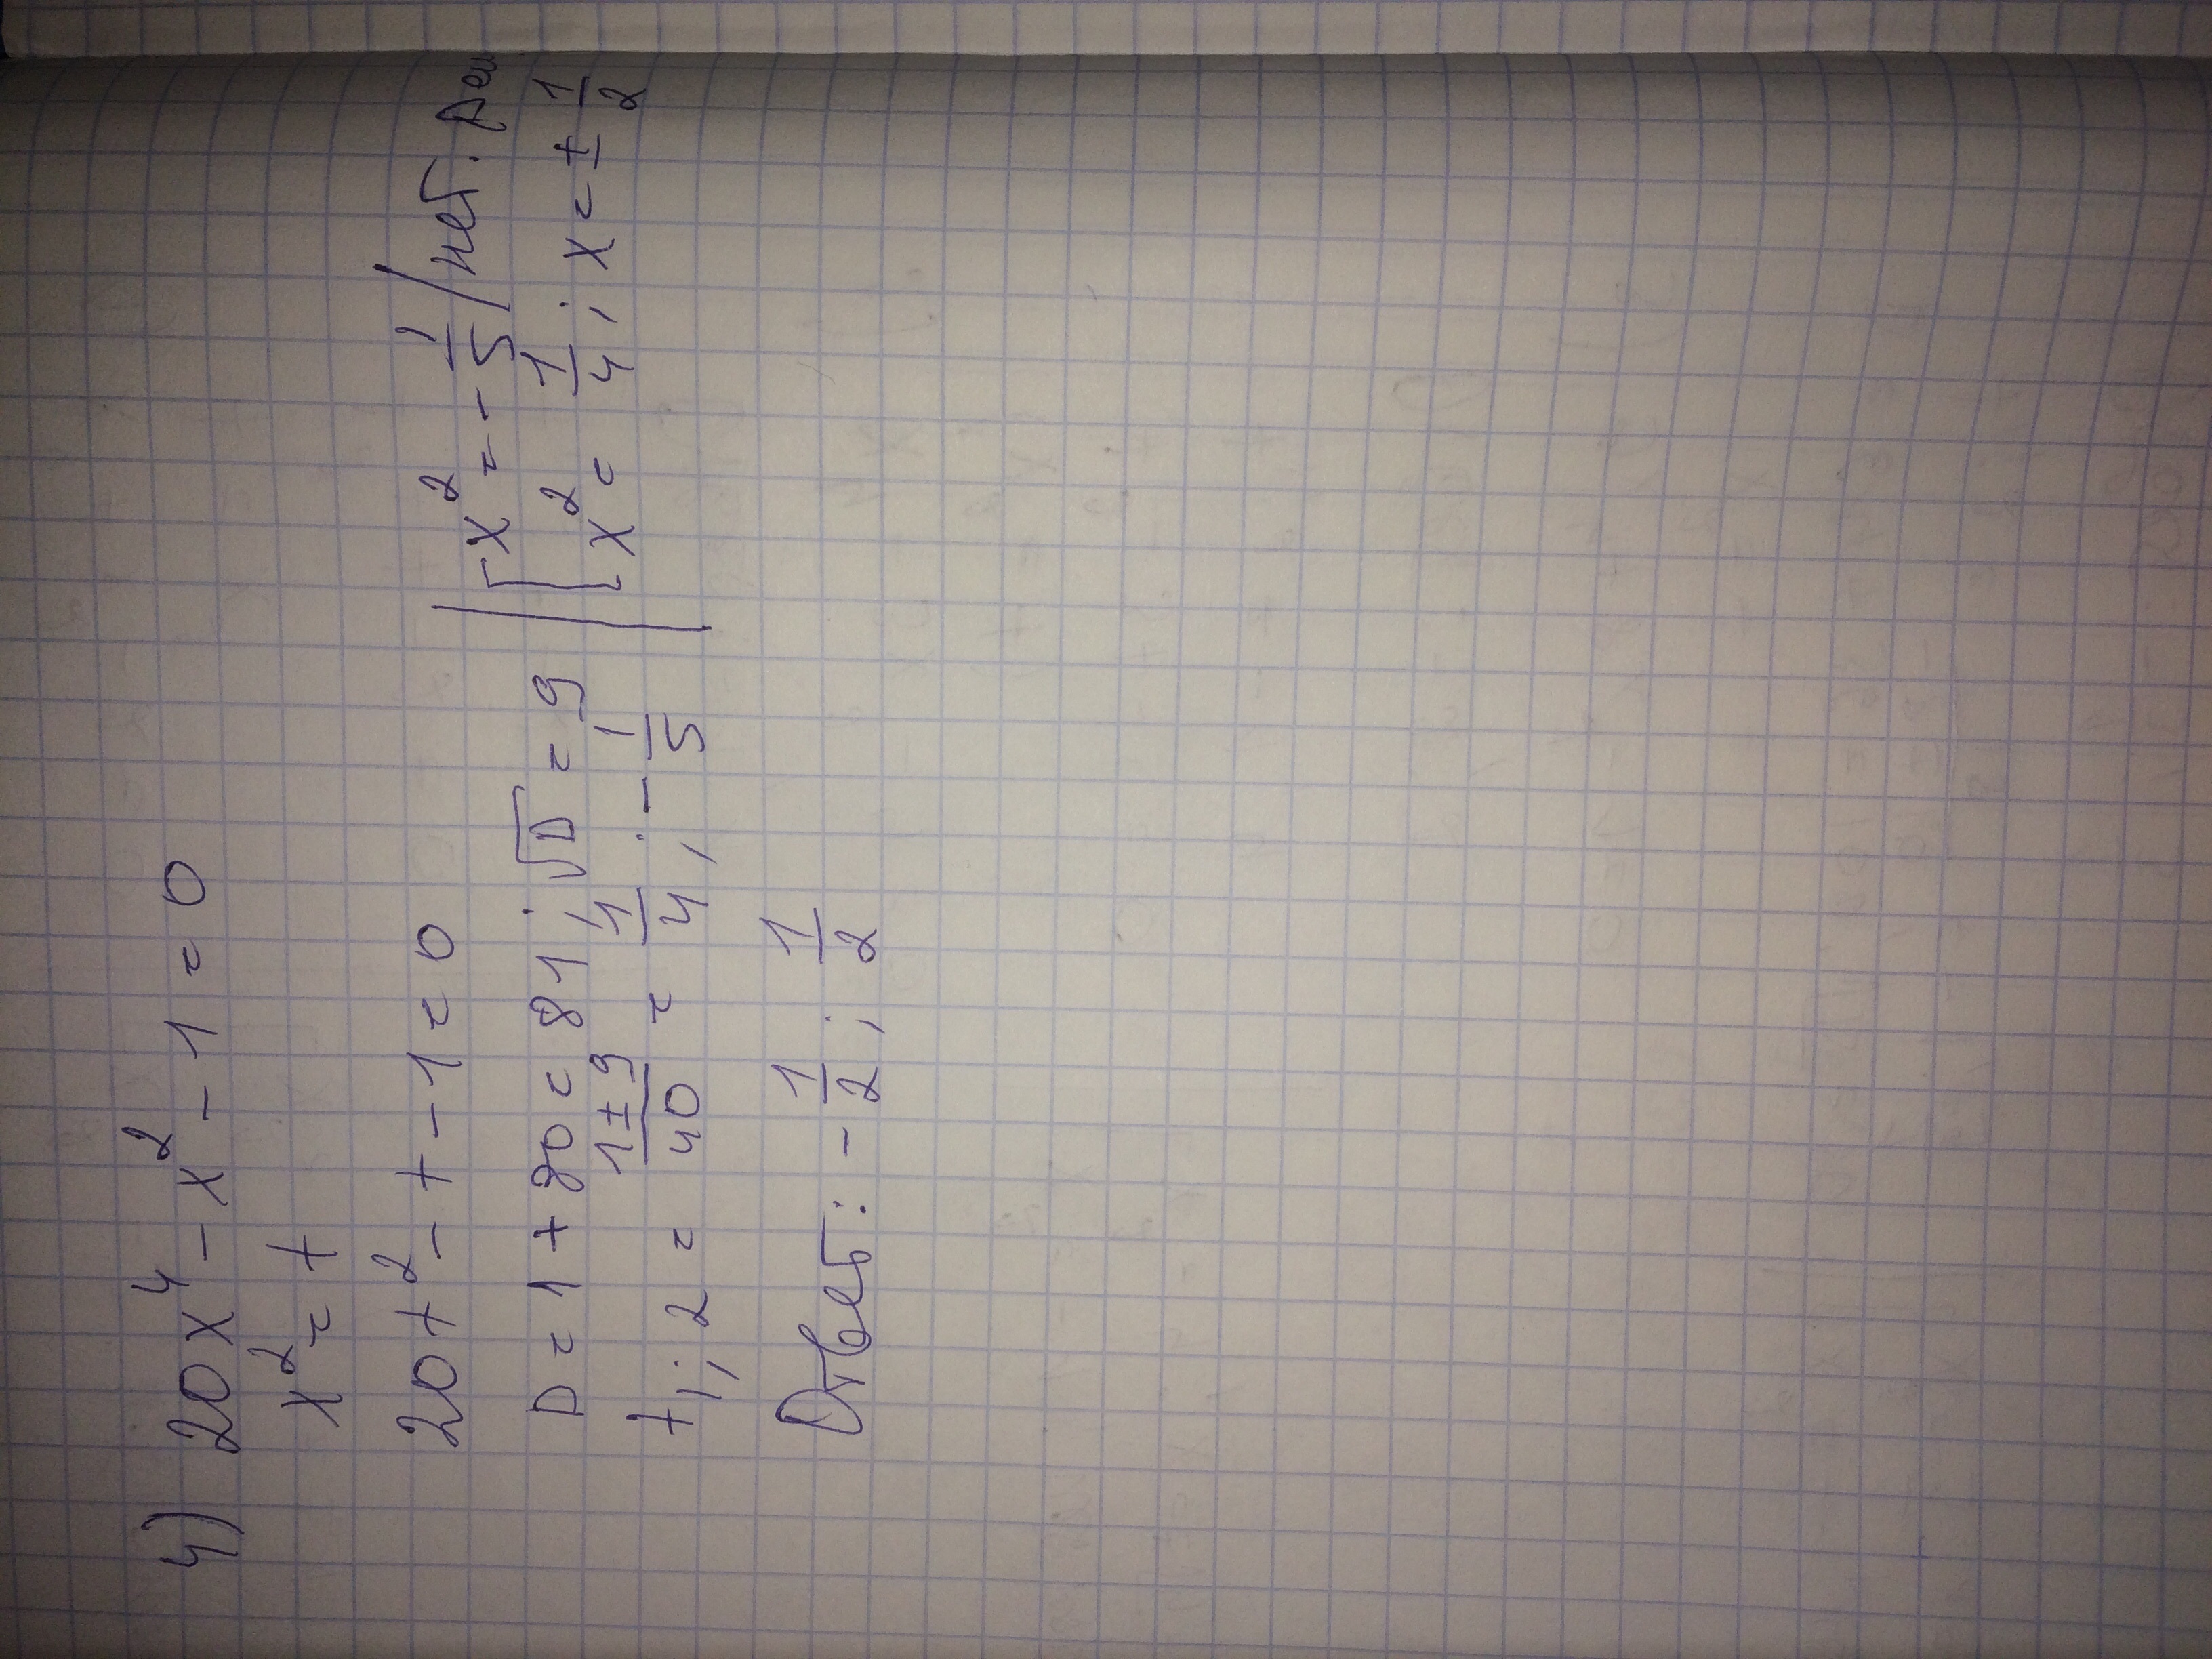 4) 20x⁴ - x² - 1 = 0
x² = t
20t² - t - 1 = 0
D = 1 + 80 = 81; √D = 9
t₁;₂ = (1 ± 9)/40 = 1/4; -1/5
[x² = -1/5 / нет. реш
[x² = 1/4; x = ± 1/2
Ответ: -1/2; 1/2